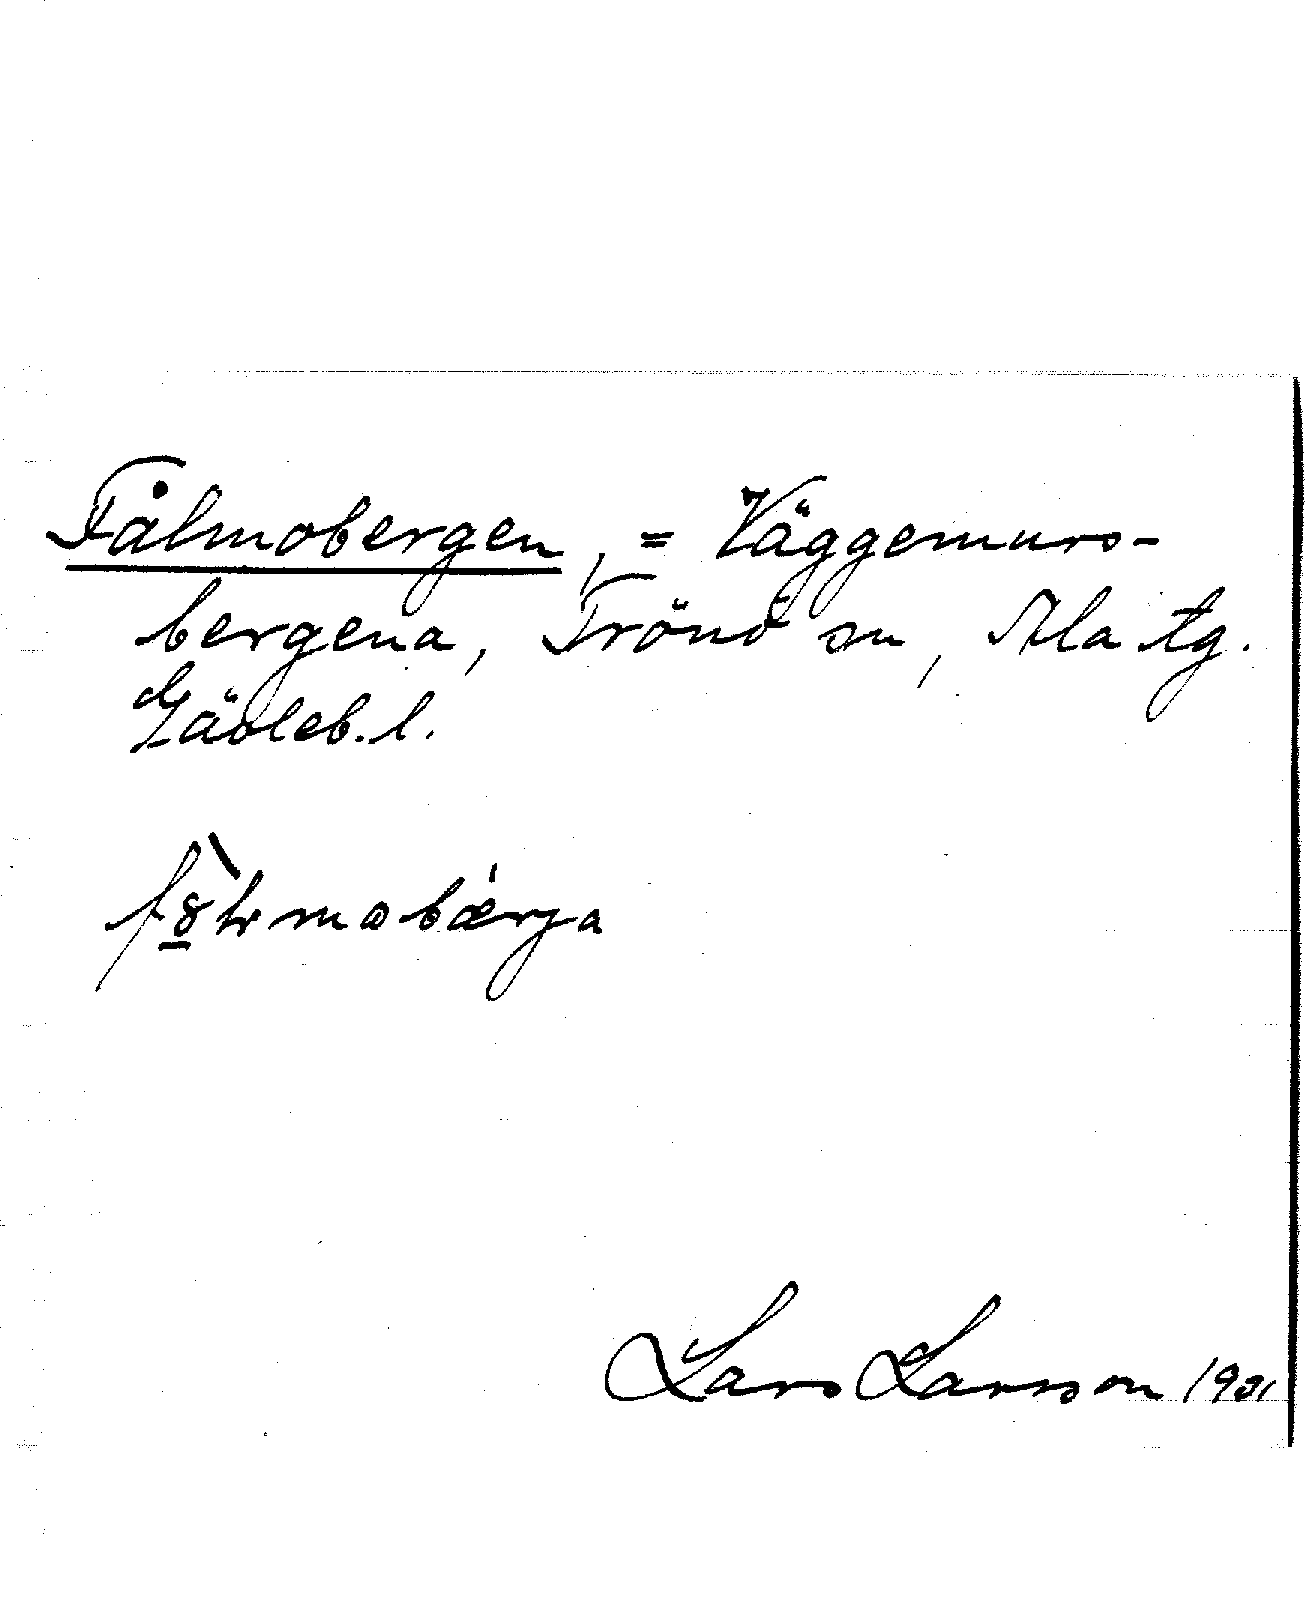 Fålmobergen, = Väggemurs-
bergena, Trönö sn, Ala tg.
Gävleb. l.
Lars Larsson 1931